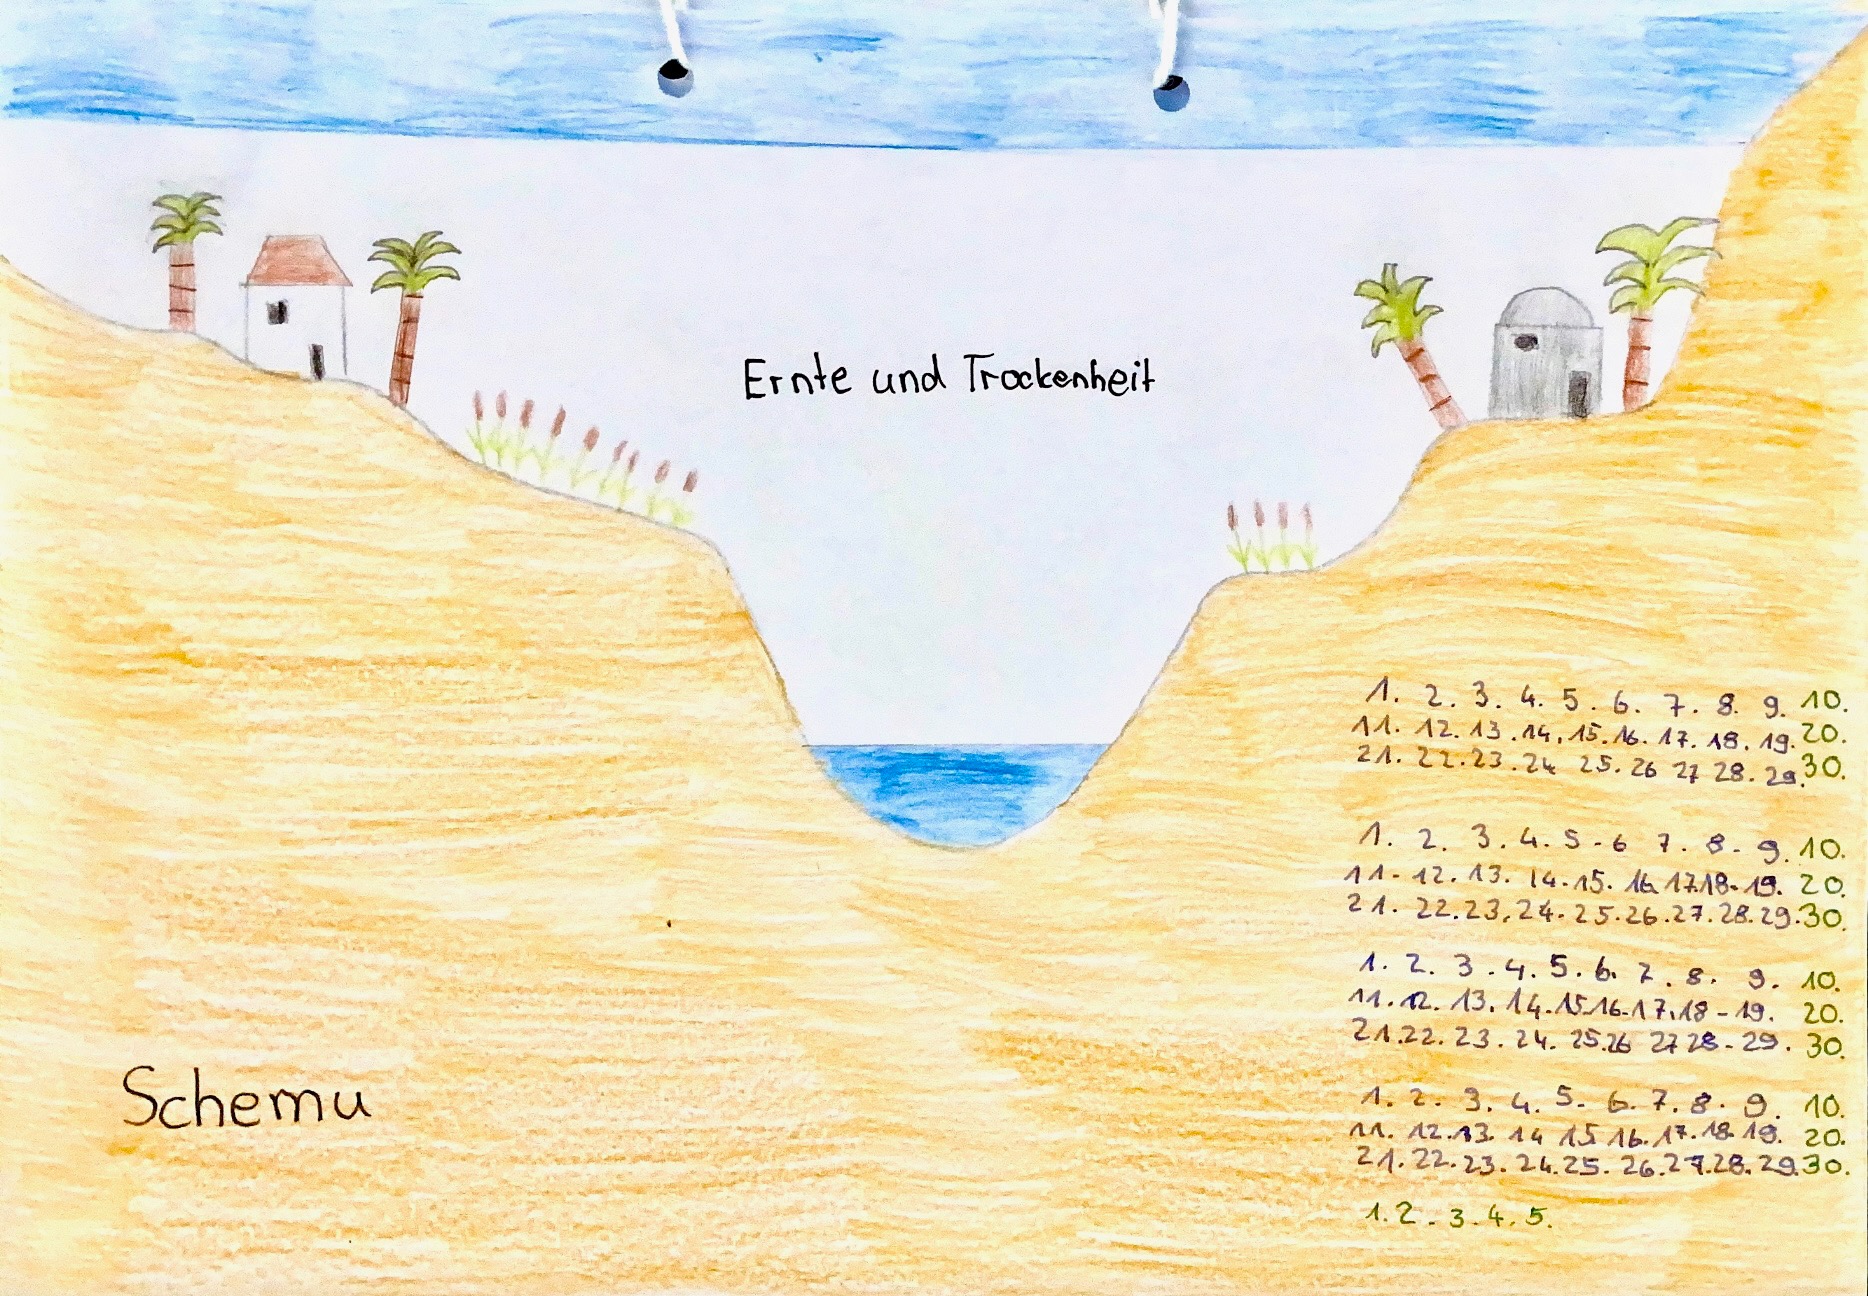 Ernte und Trockenheit
1. 2. 3. 4. 5. 6. 7. 8. 9. 10.
11. 12. 13. 14. 15. 16. 17. 18. 19. 20.
21. 22. 23. 24 25. 26 27 28. 29. 30.
1. 2. 3. 4. 5 - 6 7. 8 - 9. 10.
11 - 12. 13. 14. 15. 16. 17. 18. 19. 20.
21. 22. 23. 24. 25. 26. 27. 28. 29. 30.
1. 2. 3. 4. 5. 6. 7. 8. 9. 10.
11. 12. 13. 14. 15. 16. 17. 18 - 19. 20.
21. 22. 23. 24. 25. 26 27 28 - 29. 30.
Schemu
1. 2. 3. 4. 5. 6. 7. 8. 9. 10.
11. 12. 13. 14 15 16. 17. 18. 19. 20.
21. 22. 23. 24. 25. 26. 27. 28. 29. 30.
1. 2. 3. 4. 5.